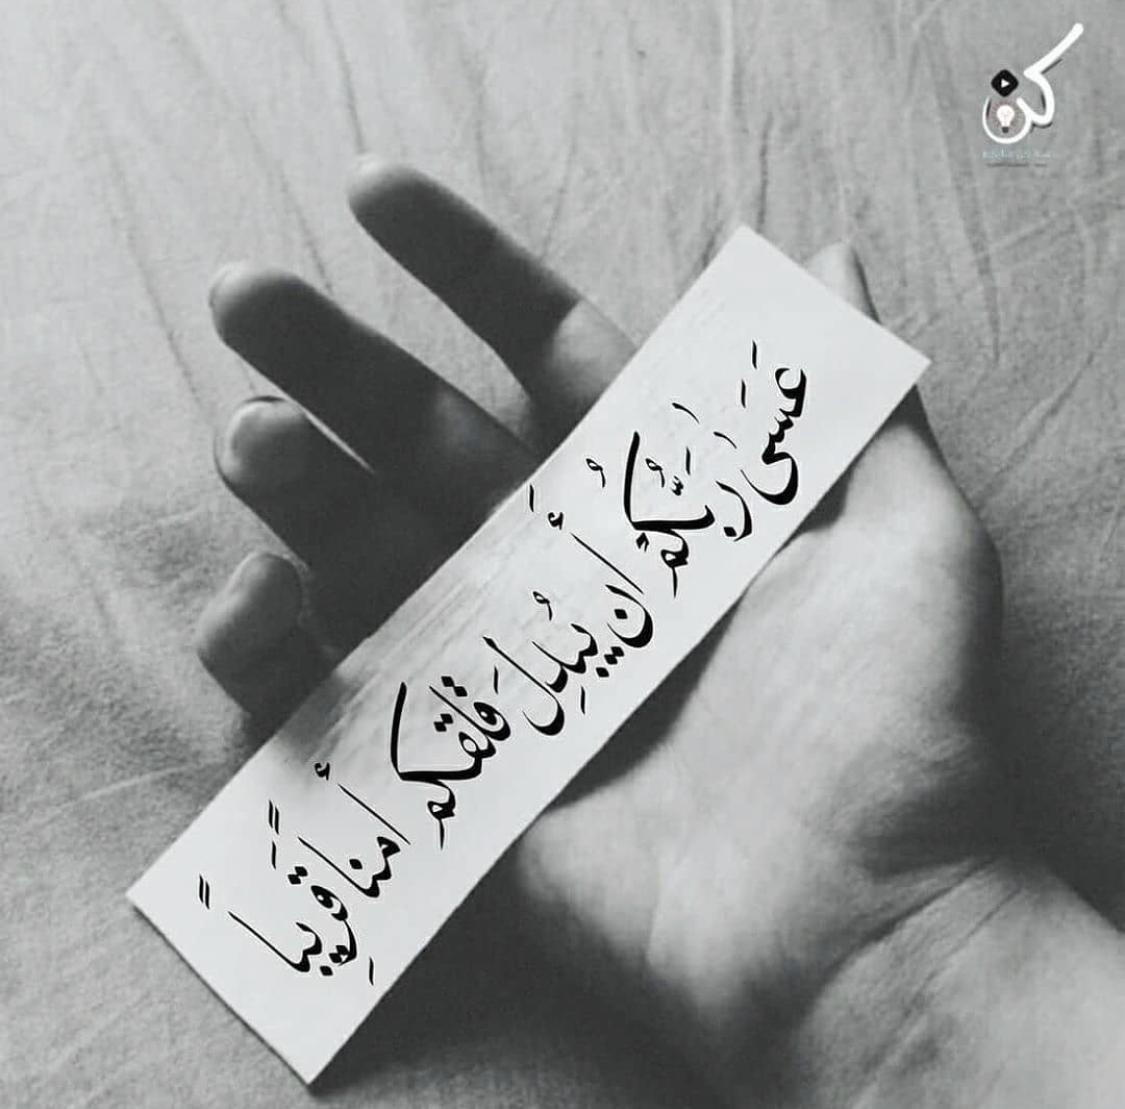 كن
عَسَى رَبُّكُمْ أَن يُبْدِلَ قَلَقَكُم أمناً قَرِيباً